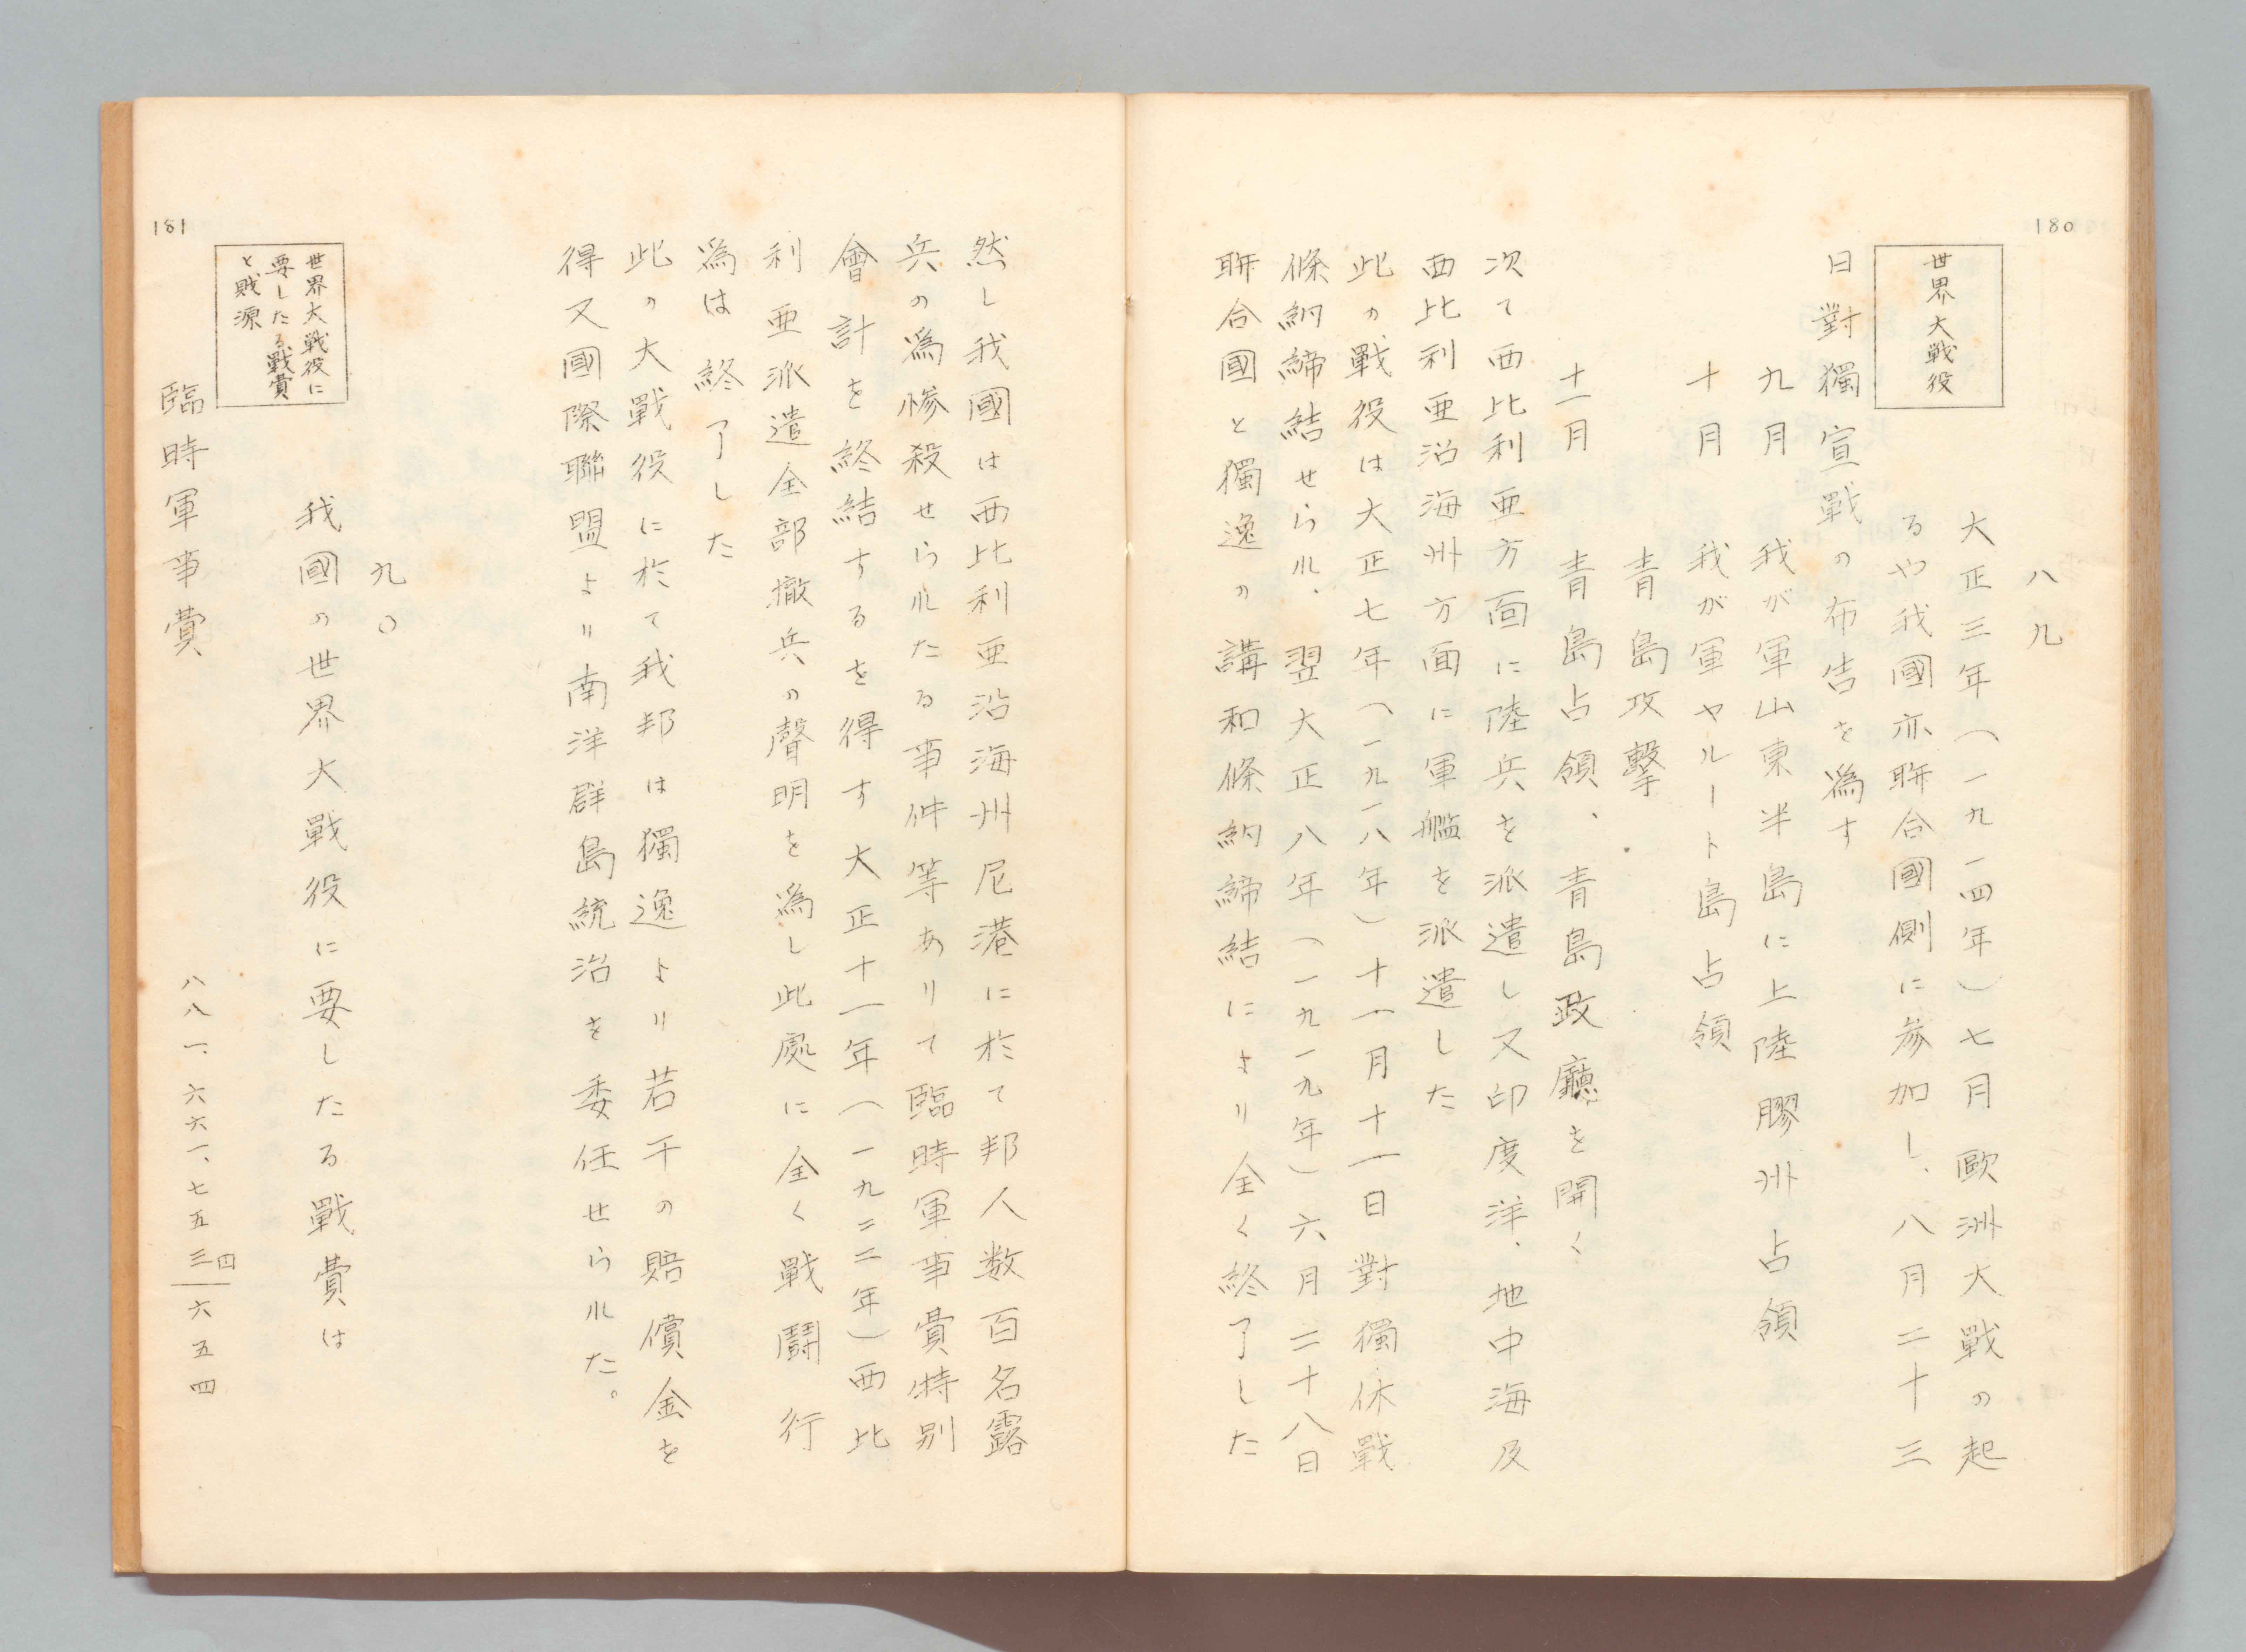 180
世界大戰役
八九
大正三年（一九一四年）七月歐洲大戰の起
るや我國亦聯合國側に參加し、八月二十三
日對獨宣戰の布告を爲す
九月　我が軍山東半島に上陸膠洲占領
十月　我が軍ヤルート島占領
青島攻擊
十一月　青島占領、青島政廳を開く
次て西比利亜方面に陸兵を派遣し又印度洋、地中海及
西比利亜沿海州方面に軍艦を派遣した
此の戰役は大正七年（一九一八年）十一月十一日對獨休戰
條約締結せられ、翌大正八年（一九一九年）六月二十八日
聯合國と獨逸の講和條約締結により全く終了した
然し我國は西比利亜沿海州尼港に於て邦人数百名露
兵の爲慘殺せられたる事件等ありて臨時軍事費特別
會計を終結するを得す大正十一年（一九二二年）西比
利亜派遣全部撤兵の聲明を爲し此處に全く戰鬪行
爲は終了した
此の大戰役に於て我邦は獨逸より若干の賠償金を
得又國際聯盟より南洋群島統治を委任せられた。
181
世界大戰役に
要したる戰費
と財源
九〇
我國の世界大戰役に要したる戰費は
臨時軍事費　八八一、六六一、七五三四六五四